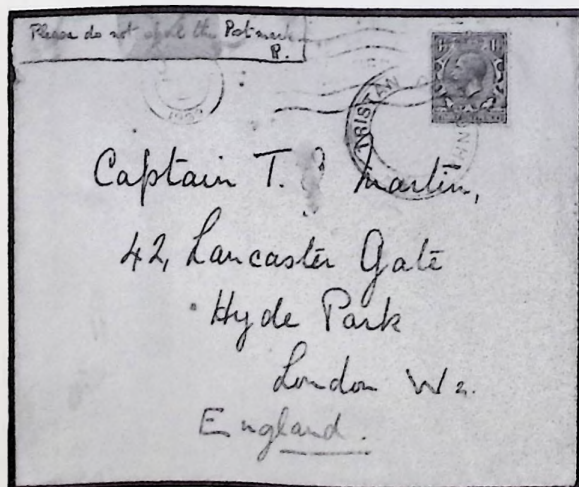 Please do not spoil the Postmark
P.
TRISTAN
Captain T. Martin,
42, Lancaster Gate
Hyde Park
London W2.
England.